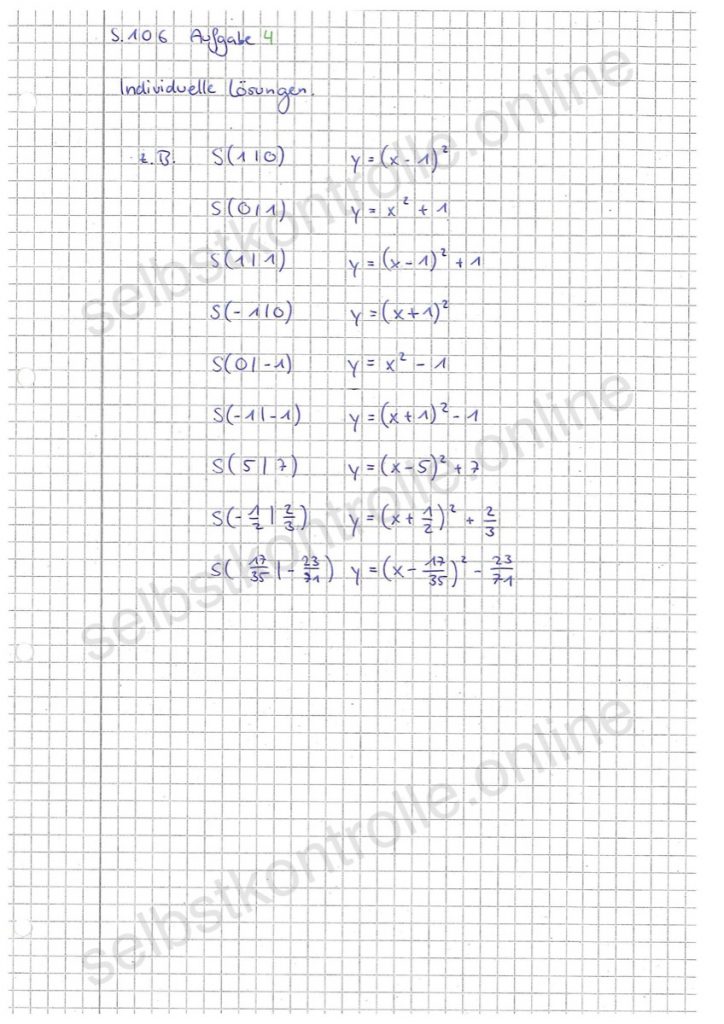 S. 106 Aufgabe 4
Individuelle Lösungen.
z.B. S(1|0) y = (x - 1)²
S(0|1) y = x² + 1
S(1|1) y = (x - 1)² + 1
S(-1|0) y = (x + 1)²
S(0|-1) y = x² - 1
S(-1|-1) y = (x + 1)² - 1
S(5|7) y = (x - 5)² + 7
S(-1/2|2/3) y = (x + 1/2)² + 2/3
S(17/35|-23/71) y = (x - 17/35)² - 23/71
selbstkontrolle.online
selbstkontrolle.online
selbstkontrolle.online